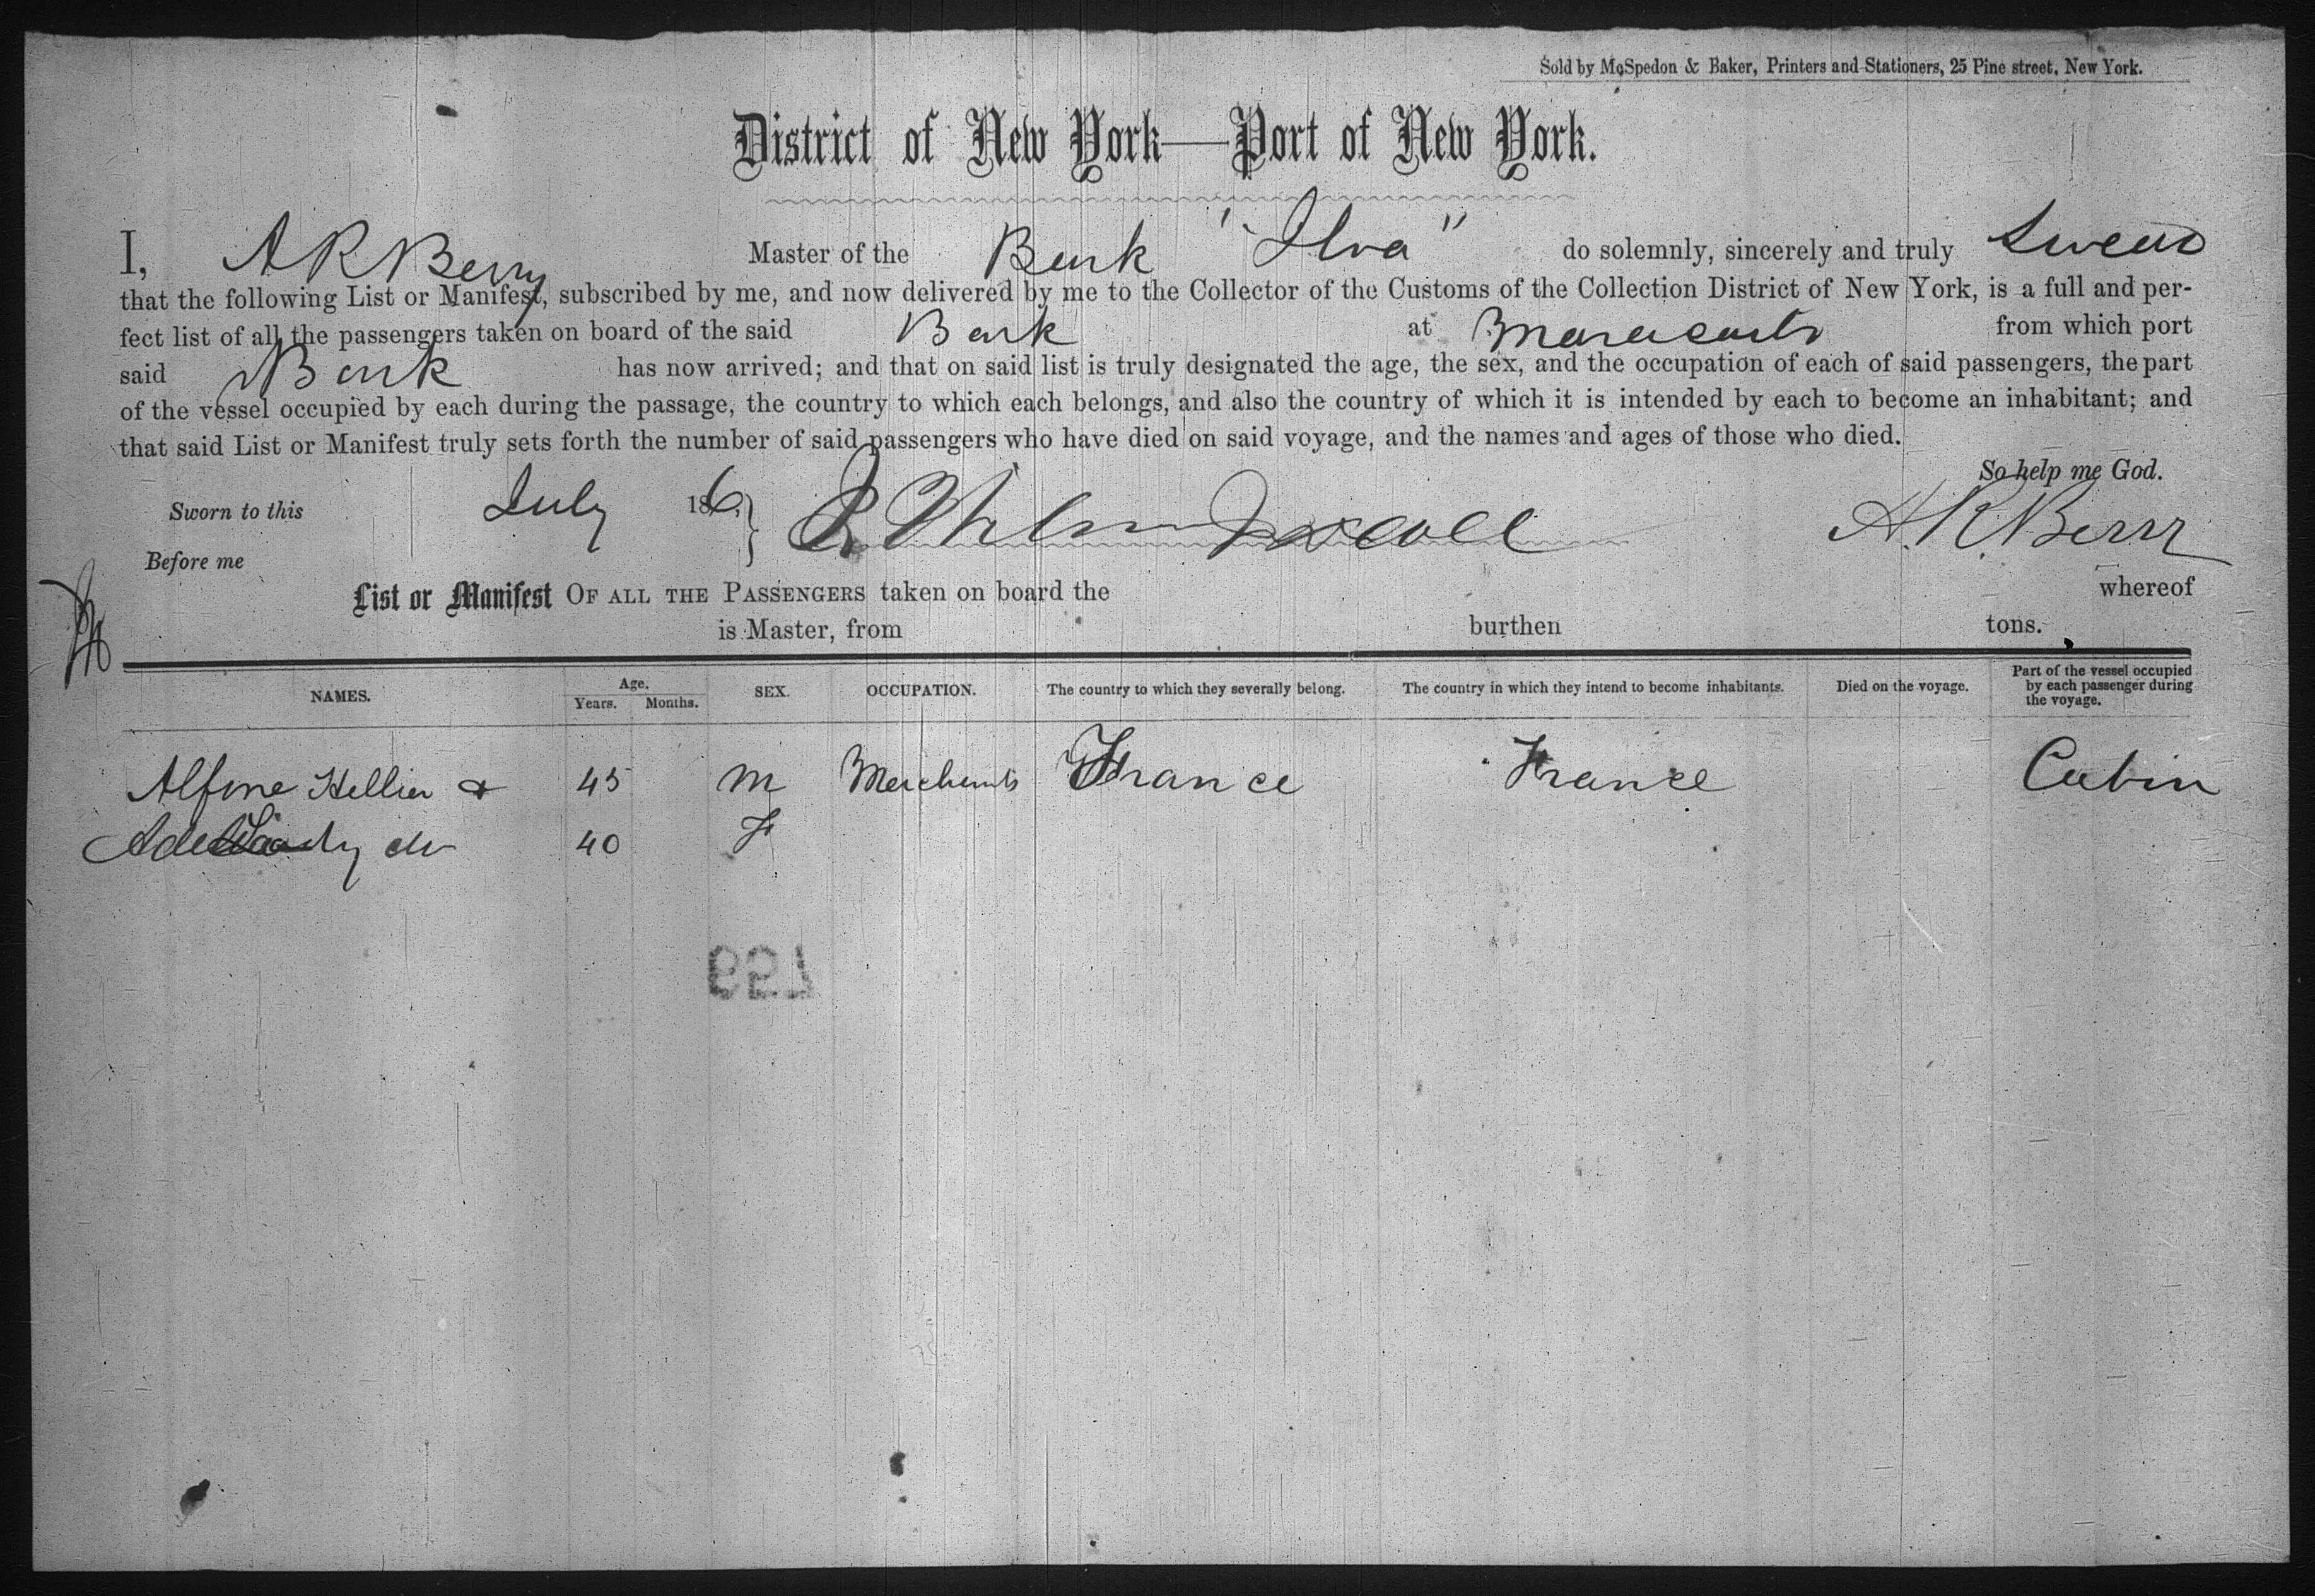 Sold by McSpedon & Baker, Printers and Stationers, 25 Pine street, New York.
District of New York—Port of New York.
I, A R Berry Master of the Bark "Ilva" do solemnly, sincerely and truly Swear
that the following List or Manifest, subscribed by me, and now delivered by me to the Collector of the Customs of the Collection District of New York, is a full and per-
fect list of all the passengers taken on board of the said Bark at Maracaibo from which port
said Bark has now arrived; and that on said list is truly designated the age, the sex, and the occupation of each of said passengers, the part
of the vessel occupied by each during the passage, the country to which each belongs, and also the country of which it is intended by each to become an inhabitant; and
that said List or Manifest truly sets forth the number of said passengers who have died on said voyage, and the names and ages of those who died.
So help me God.
Sworn to this July 186
A. R. Berry
Before me
List or Manifest OF ALL THE PASSENGERS taken on board the whereof
is Master, from burthen tons.
NAMES. Age. Years. Months. SEX. OCCUPATION. The country to which they severally belong. The country in which they intend to become inhabitants. Died on the voyage. Part of the vessel occupied by each passenger during the voyage.
Alfone Hellier & 45 M Merchants France France Cabin
40 F
759